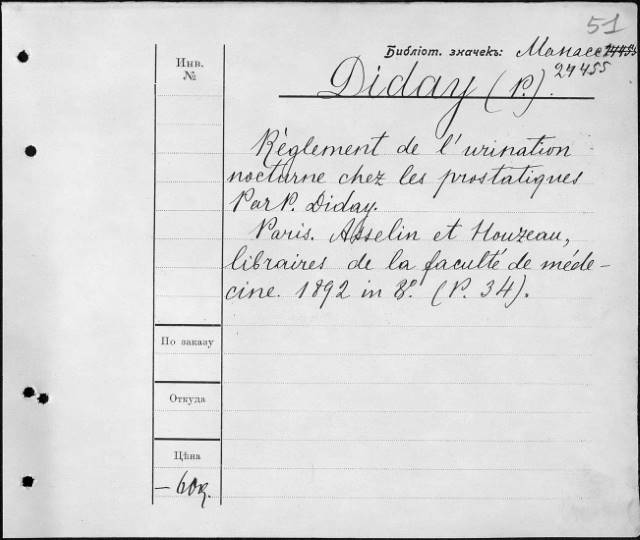 51
Библіот. значекъ: Манасс 27455
27455
Инв.
№
Diday (P.).
Règlement de l'urination
nocturne chez les prostatiques
Par P. Diday.
Paris. Asselin et Houzeau,
libraires de la faculté de méde-
cine. 1892 in 8º. (P. 34).
По заказу
Откуда
Цѣна
— 60к.